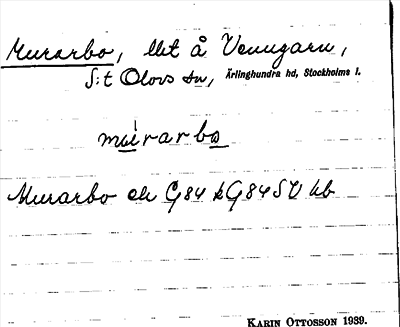 Murarbo, llet å Venngarn,
S:t Olovs sn, Ärlinghundra hd, Stockholms l.
murarbo
Murarbo ek G84 kG84SV hb
KARIN OTTOSSON 1939.